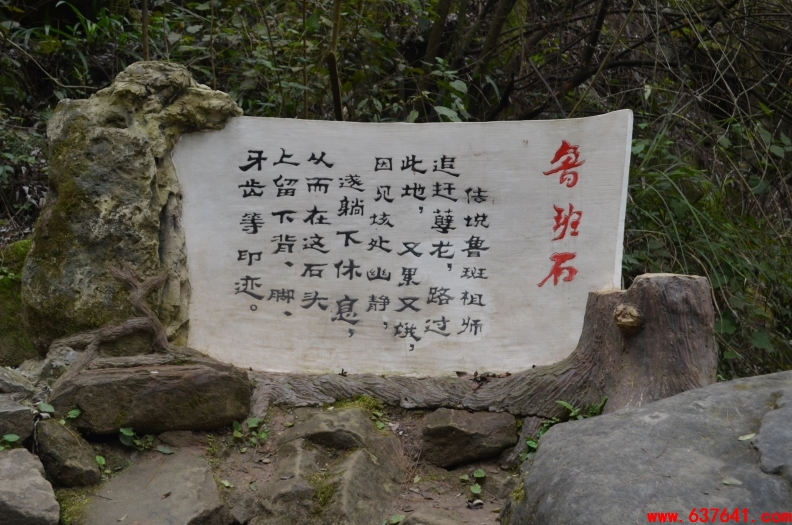 鲁班石
传说鲁班祖师
追赶孽龙，路过
此地，又累又饿，
因见该处幽静，
遂躺下休息，
从而在这石头
上留下背、脚、
牙齿等印迹。
www.637641.com